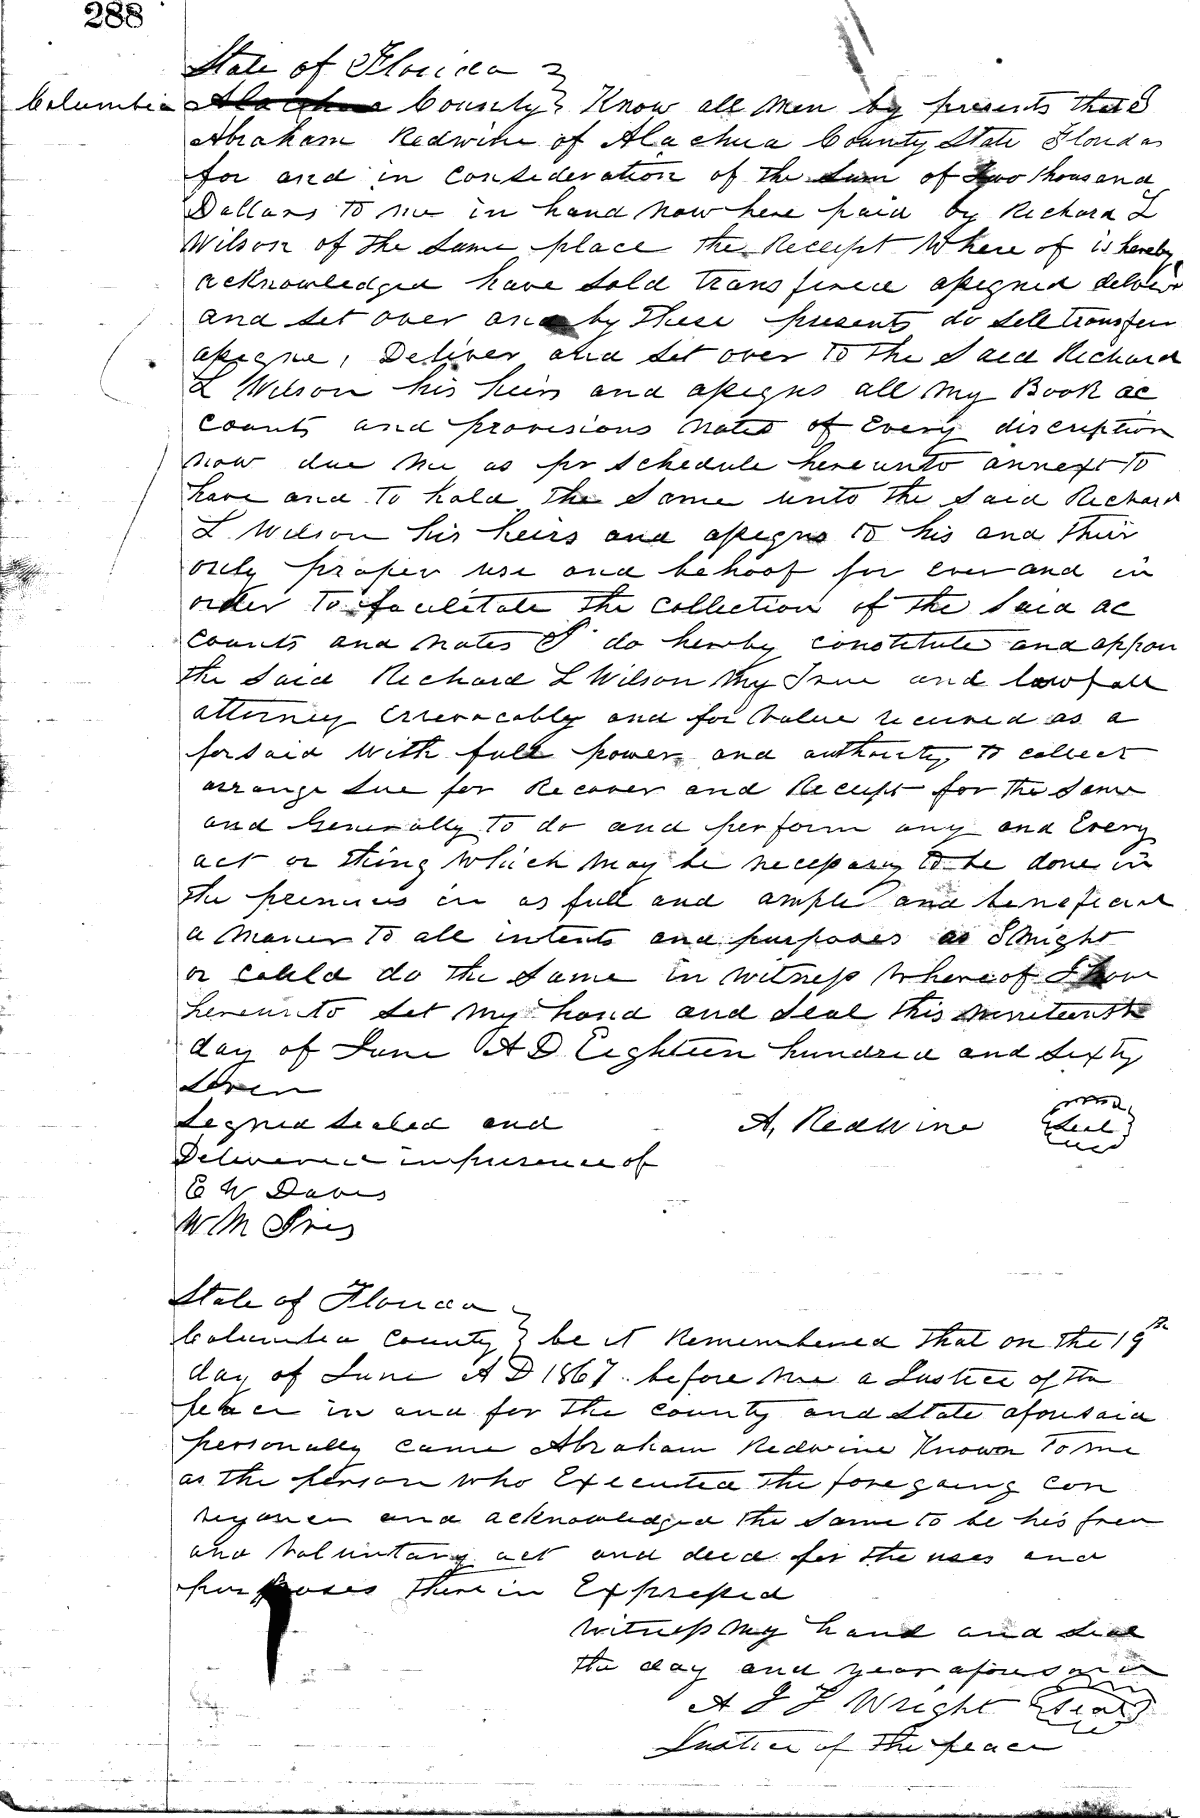 288
State of Florida }
Columbia Alachua County } Know all men by presents that I
Abraham Redwine of Alachua County State Florida
for and in Consideration of the Sum of two thousand
Dollars to me in hand now here paid by Richard L
Wilson of the Same place the Receipt Where of is hereby
acknowledged have Sold transfered assigned deliver
and Set over and by these presents do Sell transfer
assigne, Deliver and Set over to the Said Richard
L Wilson his heirs and assigns all my Book ac
counts and provisions notes of Every discription
now due me as pr Schedule hereunto annext to
have and to hold the Same unto the Said Richard
L Wilson his heirs and assigns to his and their
only proper use and behoof for ever and in
order to facilitate the Collection of the Said ac
counts and notes I do hereby constitute and appoin
the Said Richard L Wilson my True and lawfull
attorney Errevocably and for Value received as a
forsaid With full power and authority to collect
arrange Sue for Recover and Receipt for the Same
and Generally to do and perform any and Every
act or thing Which may be necessary to be done in
the premises in as full and ample and beneficial
a maner to all intents and purposes as I might
or could do the Same in witness Whereof I have
hereunto Set my hand and Seal this nineteenth
day of June A D Eighteen hundred and Sixty
Seven
Signed Sealed and A. Redwine Seal
Delivered in presence of
E W Davis
W M Ives
State of Florida }
Columbia County } be it Remembered that on the 19th
day of June A D 1867 before me a Justice of the
peace in and for the county and State aforesaid
personally came Abraham Redwine Known to me
as the person who Executed the foregoing con
veyance and acknowledged the Same to be his free
and Voluntary act and deed for the uses and
purposes therein Expressed
Witness my hand and Seal
the day and year aforesaid
A J T Wright Seal
Justice of the peace